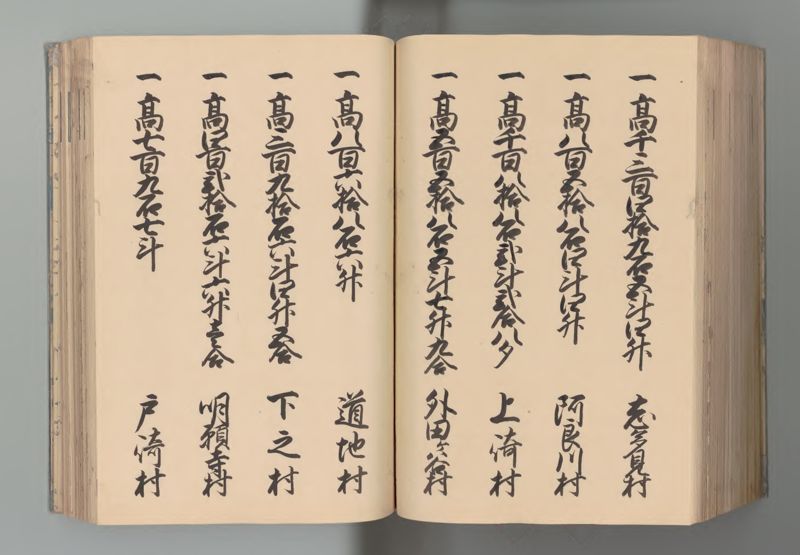 一 高千三百四拾九石五斗四升 志多見村
一 高八百五拾八石四斗四升 阿良川村
一 高千百八拾八石弐斗弐合八夕 上崎村
一 高五百五拾八石五斗七升九合 外田ケ谷村
一 高八百六拾八石六升 道地村
一 高三百九拾石六斗四升五合 下之村
一 高四百弐拾石六斗六升壱合 明願寺村
一 高七百九石七斗 戸崎村